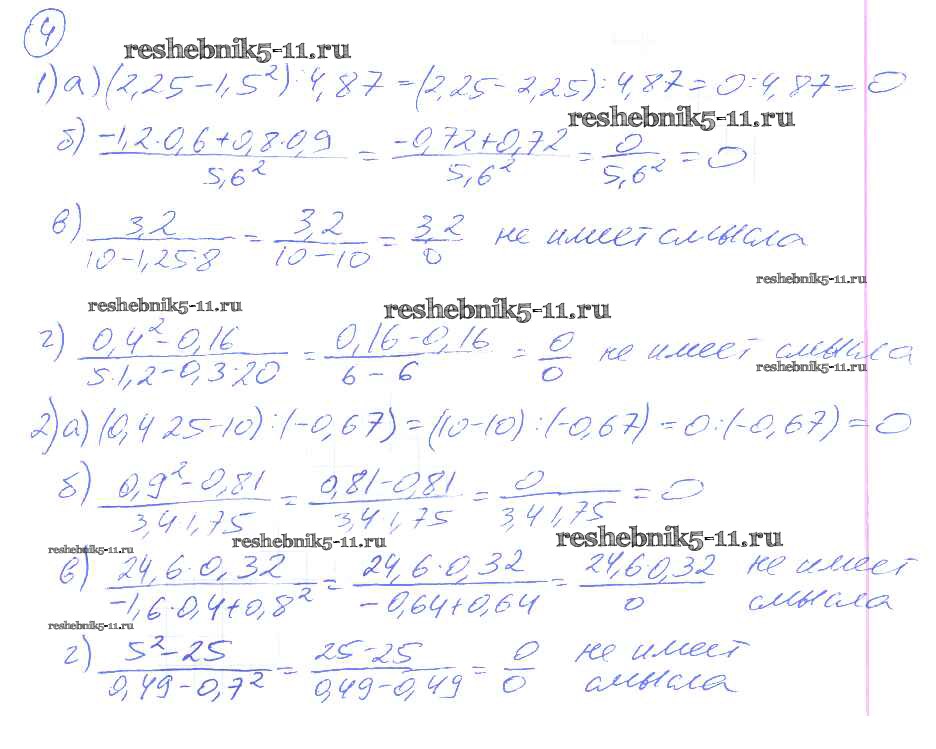 4
reshebnik5-11.ru
1) а) (2,25-1,5²):4,87=(2,25-2,25):4,87=0:4,87=0
reshebnik5-11.ru
б) (-1,2·0,6+0,8·0,9)/5,6² = (-0,72+0,72)/5,6² = 0/5,6² = 0
в) 3,2/(10-1,25·8) = 3,2/(10-10) = 3,2/0 не имеет смысла
reshebnik5-11.ru
reshebnik5-11.ru reshebnik5-11.ru
г) (0,4²-0,16)/(5·1,2-0,3·20) = (0,16-0,16)/(6-6) = 0/0 не имеет смысла
reshebnik5-11.ru
2) а) (0,4 25-10):(-0,67)=(10-10):(-0,67)=0:(-0,67)=0
б) (0,9²-0,81)/(3,41,75) = (0,81-0,81)/(3,41,75) = 0/(3,41,75) = 0
reshebnik5-11.ru reshebnik5-11.ru reshebnik5-11.ru
в) (24,6·0,32)/(-1,6·0,4+0,8²) = (24,6·0,32)/(-0,64+0,64) = (24,6·0,32)/0 не имеет
смысла
reshebnik5-11.ru
г) (5²-25)/(0,49-0,7²) = (25-25)/(0,49-0,49) = 0/0 не имеет
смысла